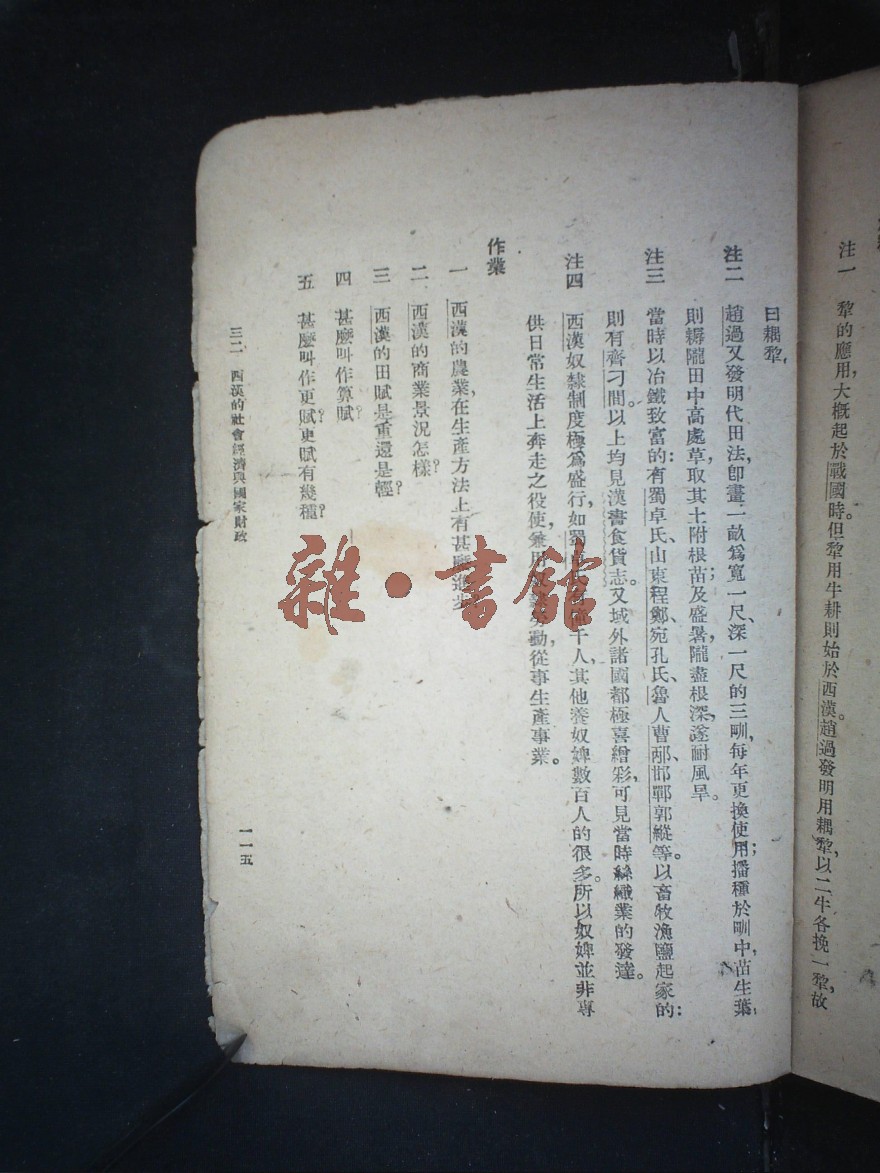 注一　犂的應用,大概起於戰國時。但犂用牛耕則始於西漢。趙過發明用耦犂,以二牛各挽一犂,故
曰耦犂。
注二　趙過又發明代田法,卽畫一畝爲寬一尺、深一尺的三甽,每年更換使用;播種於甽中,苗生葉,
則耨隴田中高處草,取其土附根苗;及盛暑,隴盡根深,遂耐風旱。
注三　當時以冶鐵致富的:有蜀卓氏、山東程鄭、宛孔氏、魯人曹邴、邯鄲郭縱等。以畜牧漁鹽起家的:
則有齊刁間。以上均見漢書食貨志。又域外諸國都極喜繒彩,可見當時絲織業的發達。
注四　西漢奴隸制度極爲盛行,如蜀卓氏千人,其他養奴婢數百人的很多。所以奴婢並非專
供日常生活上奔走之役使,兼用勞動,從事生產事業。
作業
一　西漢的農業,在生產方法上有甚麼進步
二　西漢的商業景況怎樣?
三　西漢的田賦是重還是輕?
四　甚麼叫作算賦?
五　甚麼叫作更賦?更賦有幾種?
三二　西漢的社會經濟與國家財政
一一五
雜·書館